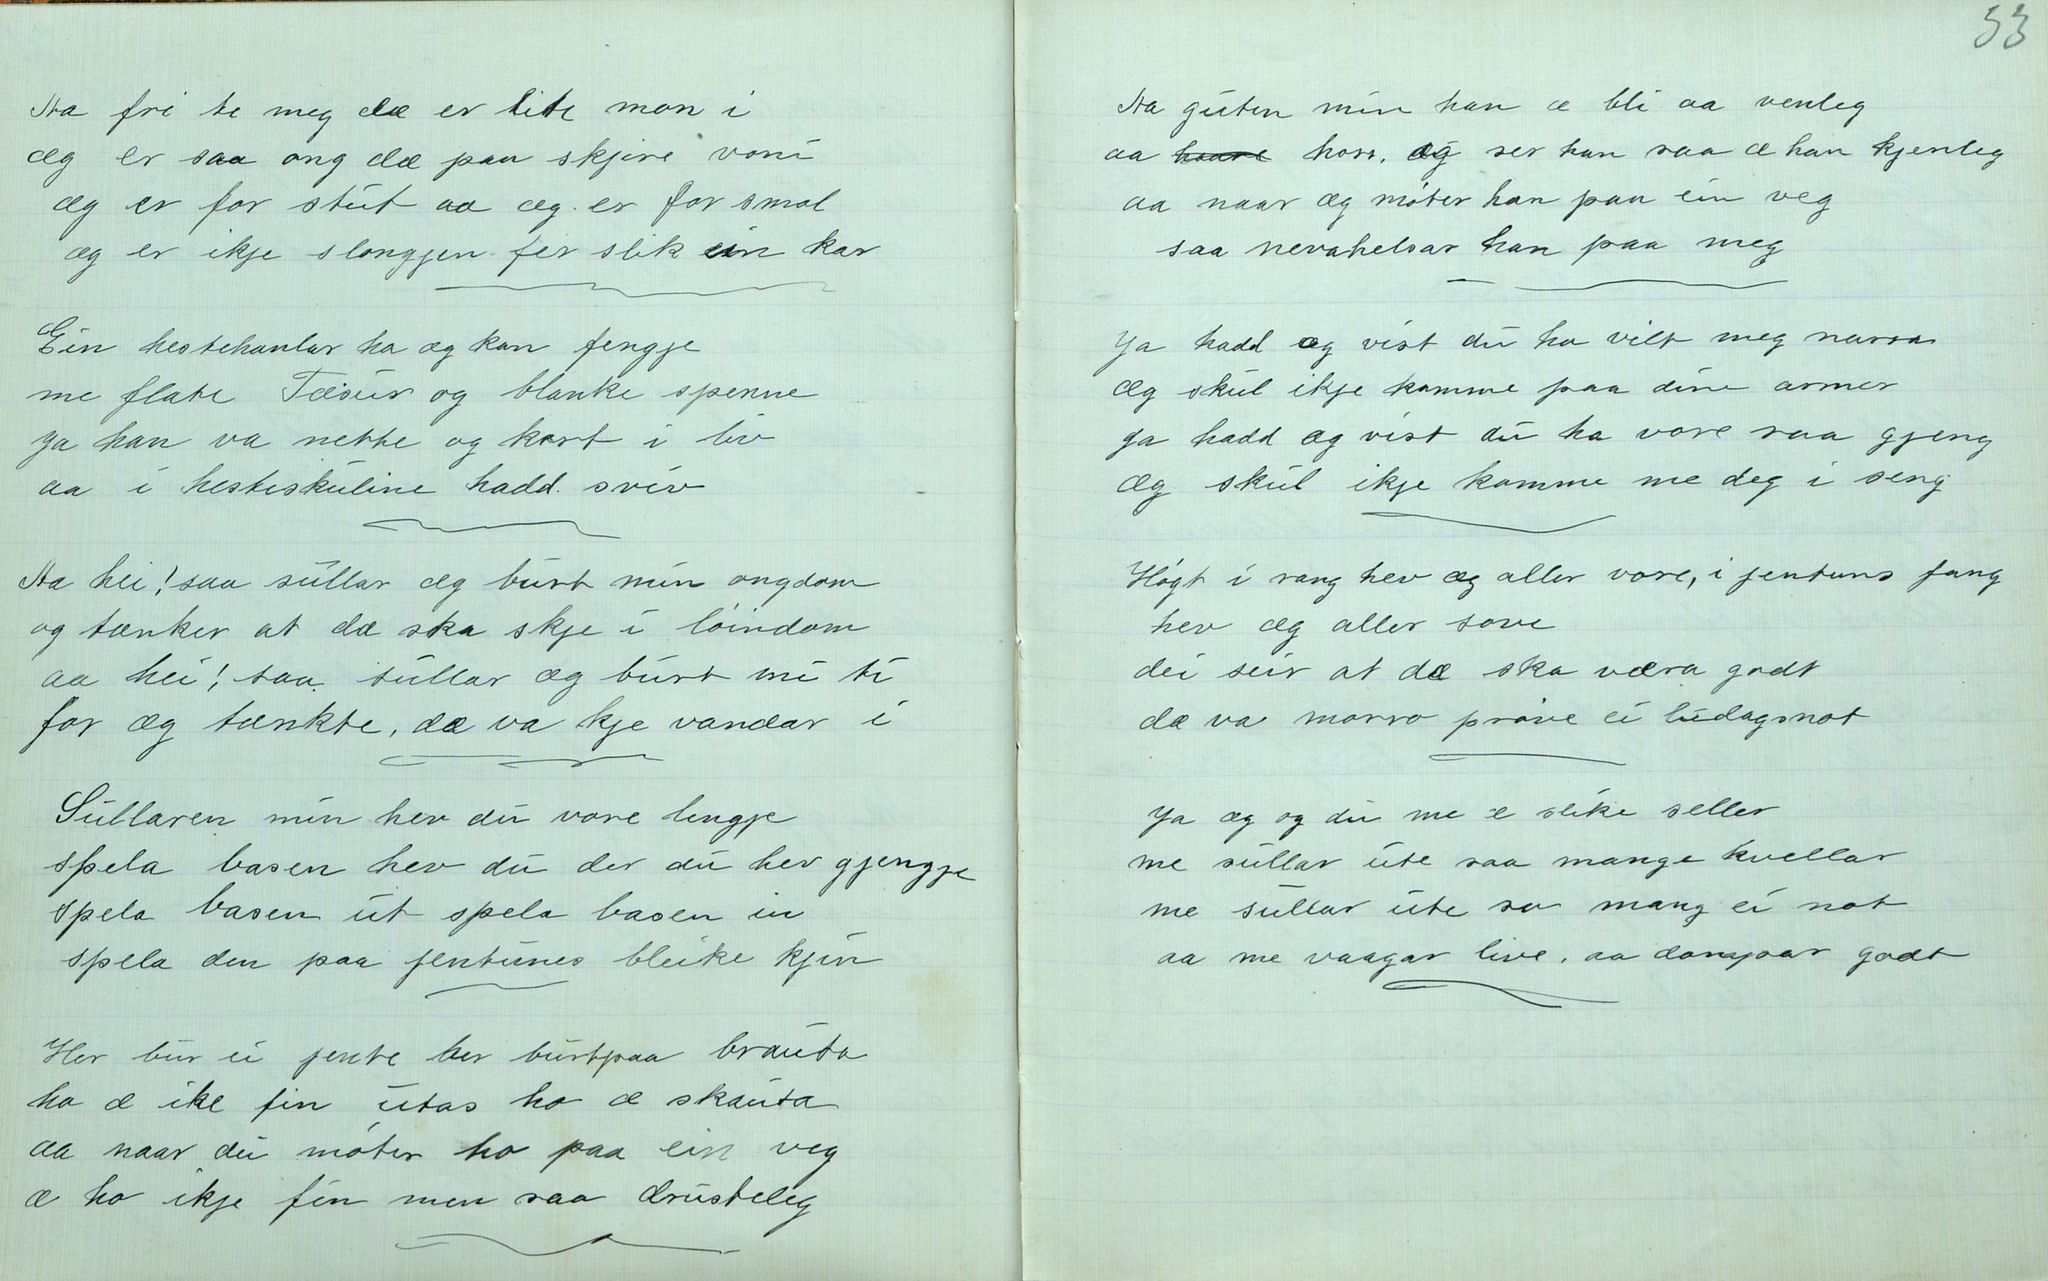 Aa fri te meg dæ er lite mon i
æg er saa ong dæ paa skjire voni
æg er for stut aa æg er for smal
æg er ikje slongjen fer slik ein kar
Ein hestehanlar ha æg kan fengje
me flate Tæsur og blanke spenne
ja han va nette og kort i liv
aa i hesteskuline hadd sviv
Aa hei! saa sullar æg burt min ongdom
og tænker at dæ ska skje i løindom
aa hei! saa sullar æg burt mi ti
for æg tænkte, dæ va kje vandar i
Sullaren min hev du vore lengje
spela basen hev du der du hev gjengje
spela basen ut spela basen in
spela den paa jentunes bleike kjin
Her bur ei jente her burtpaa brauta
ho æ ike fin utas ho æ skauta
aa naar du møter ho paa ein veg
æ ho ikje fin men saa drusteleg
53
Aa guten min han æ bli aa venleg
aa haare hors. æg ser han saa æ han kjenleg
aa naar æg møter han paa ein veg
saa nevahelsar han paa meg
Ja hadd æg vist du ha vilt meg narra
æg skul ikje komme paa dine armer
ja hadd æg vist du ha vore saa gjeng
æg skul ikje komme me deg i seng
Høgt i rang hev æg aller vore, i jentuns fang
hev æg aller sove
dei seir at dæ ska væra godt
dæ va morro prøve ei ludagsnot
Ja æg og du me æ slike seller
me sullar ute saa mange kvellar
me sullar ute so mang ei not
aa me vaagar live, aa dansar godt